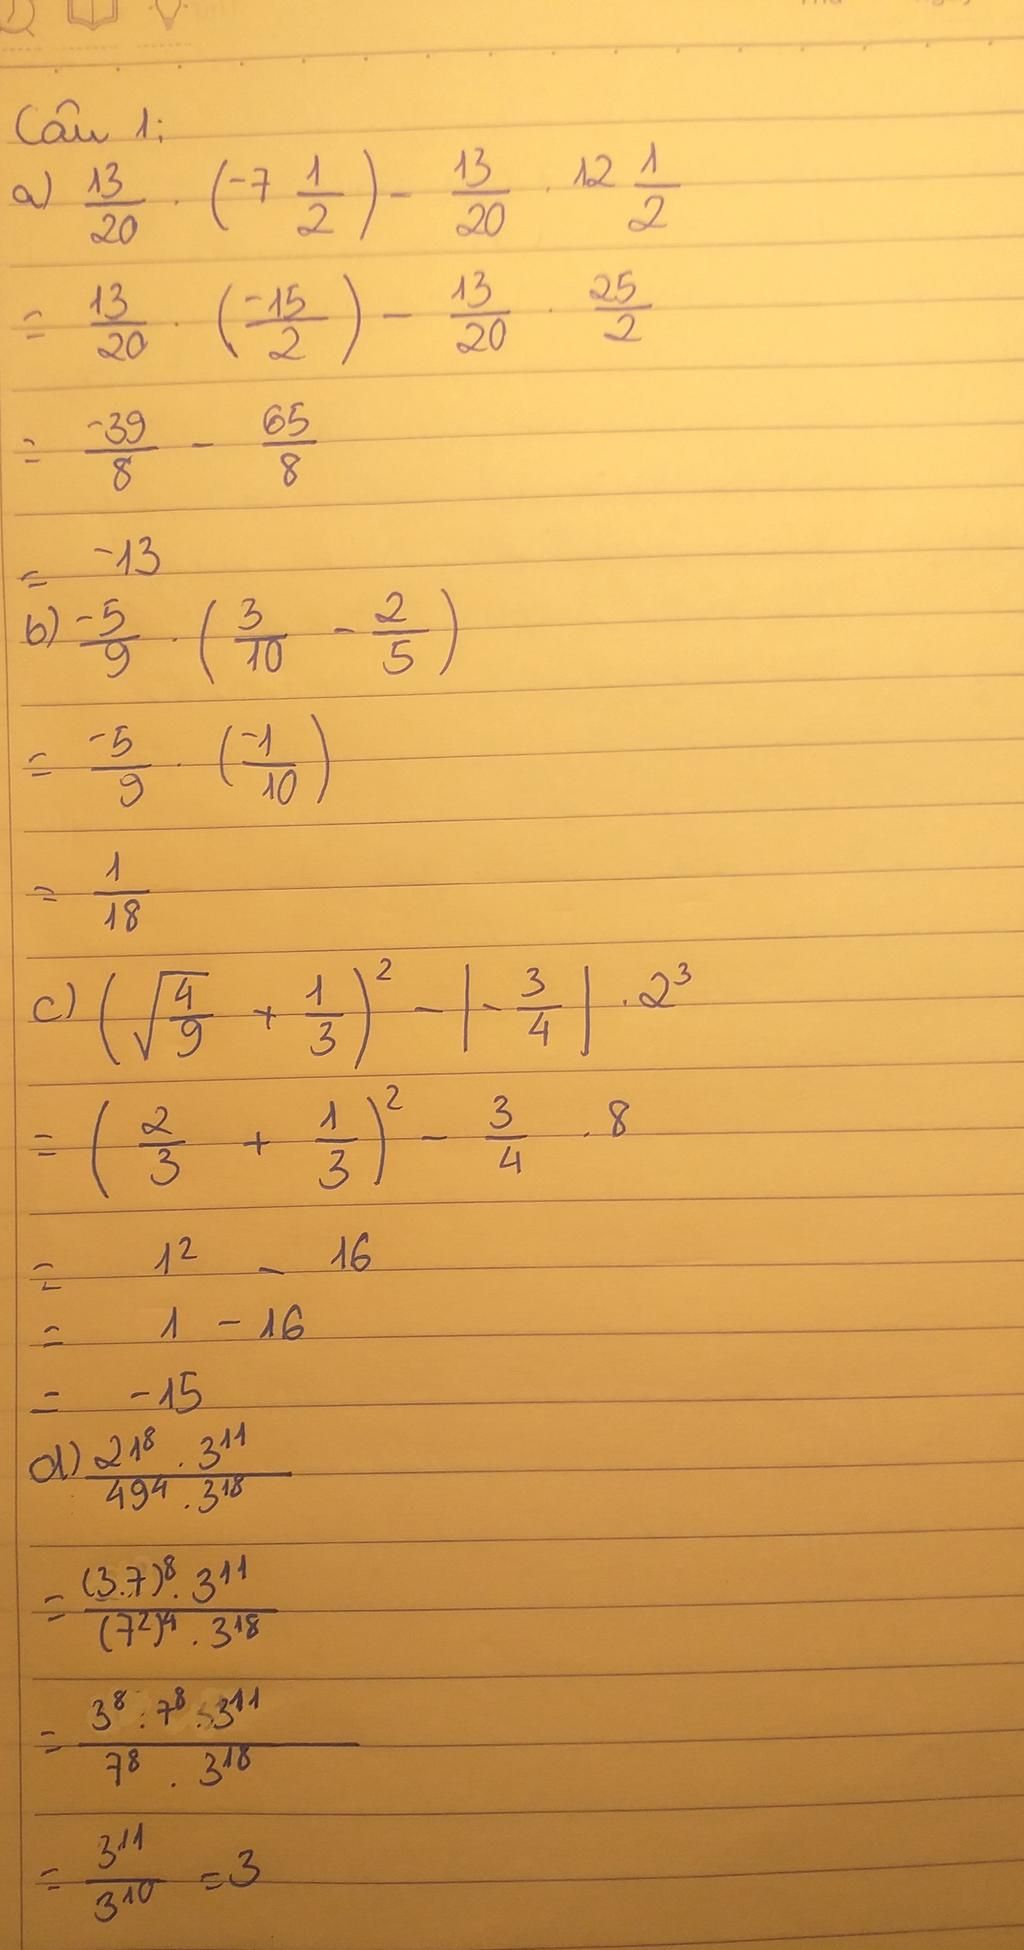 Câu 1:
a) 13/20 . (-7 1/2) - 13/20 . 12 1/2
= 13/20 . (-15/2) - 13/20 . 25/2
= -39/8 - 65/8
= -13
b) -5/9 . (3/10 - 2/5)
= -5/9 . (-1/10)
= 1/18
c) (√(4/9) + 1/3)² - |-3/4| . 2³
= (2/3 + 1/3)² - 3/4 . 8
= 1² - 16
= 1 - 16
= -15
d) 21⁸ . 3¹¹ / 49⁴ . 3¹⁸
= (3.7)⁸ . 3¹¹ / (7²)⁴ . 3¹⁸
= 3⁸ . 7⁸ . 3¹¹ / 7⁸ . 3¹⁸
= 3¹¹ / 3¹⁰ = 3